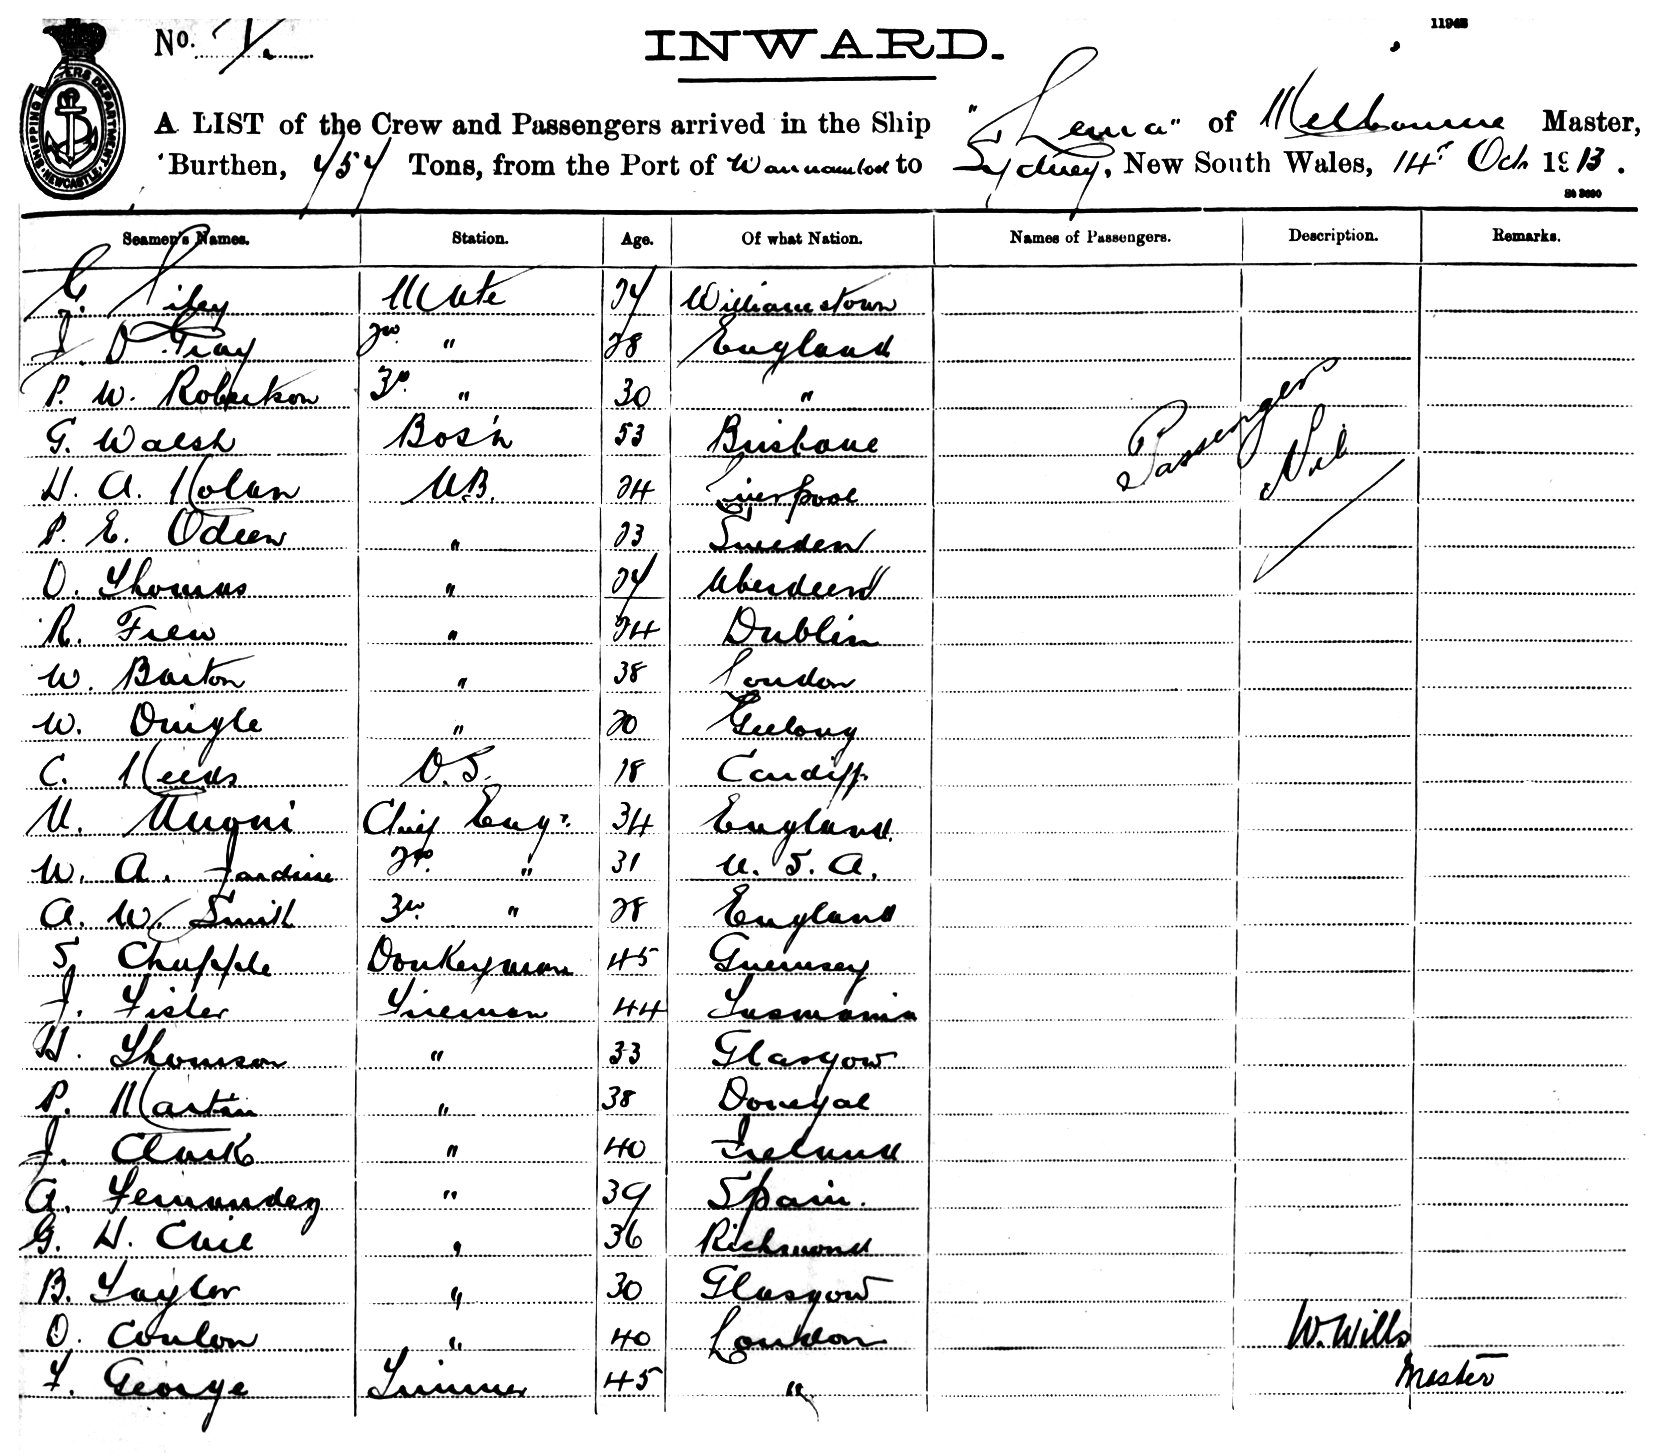 11948
No. 
INWARD.
SHIPPING MASTERS DEPARTMENT NEWCASTLE
A LIST of the Crew and Passengers arrived in the Ship of Melbourne Master,
Burthen, Tons, from the Port of to Sydney, New South Wales, 14th Oct 1913.
St 3690
Seamen's Names. Station. Age. Of what Nation. Names of Passengers. Description. Remarks.
Mate Williamstown
" 28 England
P. W. Robertson " 30 "
G. Walsh Bos'n 53 Brisbane
H. A. Nolan A.B. 24 Liverpool
P. E. Odeen " 23 Sweden
O. Thomas " Aberdeen
R. Frew " 24 Dublin
W. Barton " 38 London
W. " 20 Geelong
C. O.S. 18 Cardiff
Chief Engr. 34 England
W. A. Jardine " 31 U. S. A.
A. W. Smith 3rd " 28 England
S Chapple Donkeyman 45 Guernsey
J. Fisler Fireman 44 Tasmania
H. Thomson " 33 Glasgow
P. Martin " 38 Donegal
J. Clark " 40 Ireland
A. Fernandez " 39 Spain.
G. H. " 36 Richmond
B. Taylor " 30 Glasgow
O. Conlon " 40 London
F. George Trimmer 45 "
Passengers
Nil
W. Wills
Master